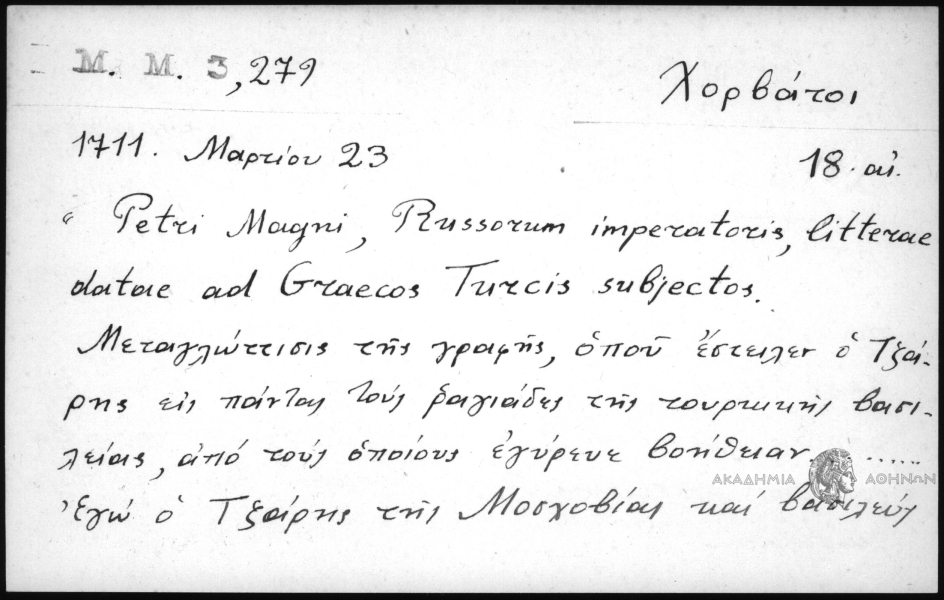 Μ. Μ. 3, 279
Χορβάτοι
1711. Μαρτίου 23
18. αἰ.
“ Petri Magni, Russorum imperatoris, litterae
datae ad Graecos Turcis subjectos.
Μεταγλώττισις τῆς γραφῆς, ὁποῦ ἔστειλεν ὁ Τζά-
ρης εἰς πάντας τούς ραγιάδες τῆς τουρκικῆς βασι-
λείας, ἀπό τούς ὁποίους ἐγύρευε βοήθειαν ......
ΑΚΑΔΗΜΙΑ ΑΘΗΝΩΝ
Ἐγώ ὁ Τζάρης τῆς Μοσχοβίας καί βασιλεύς